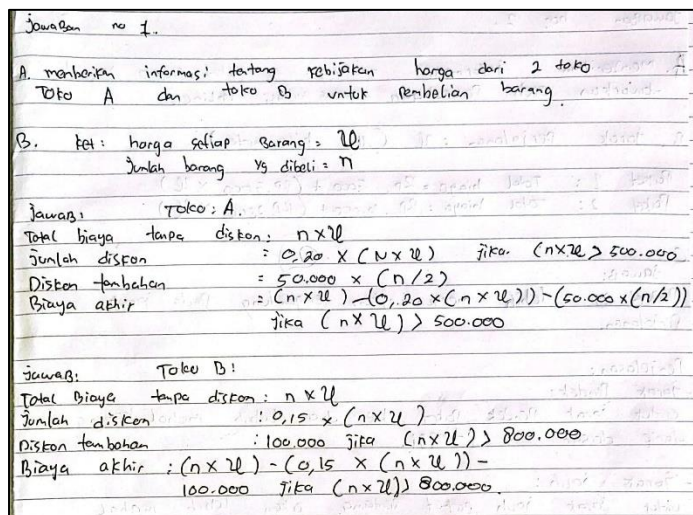 Jawaban no 1.
A. menberikan informasi tentang kebijakan harga dari 2 toko
Toko A dan toko B untuk pembelian barang.
B. ket: harga setiap Barang = U
Jumlah barang yg dibeli = n
Jawab: Toko: A.
Total biaya tanpa diskon: n x U
Jumlah diskon = 0,20 x (N x U) jika. (n x U > 500.000
Diskon tambahan = 50.000 x (n/2)
Biaya akhir = (n x U) - (0,20 x (n x U)) - (50.000 x (n/2))
jika (n x U) > 500.000
Jawab: Toko B:
Total Biaya tanpa diskon: n x U
Jumlah diskon : 0,15 x (n x U)
Diskon tambahan : 100.000 jika (n x U) > 800.000
Biaya akhir : (n x U) - (0,15 x (n x U)) -
100.000 jika (n x U)) > 800.000.